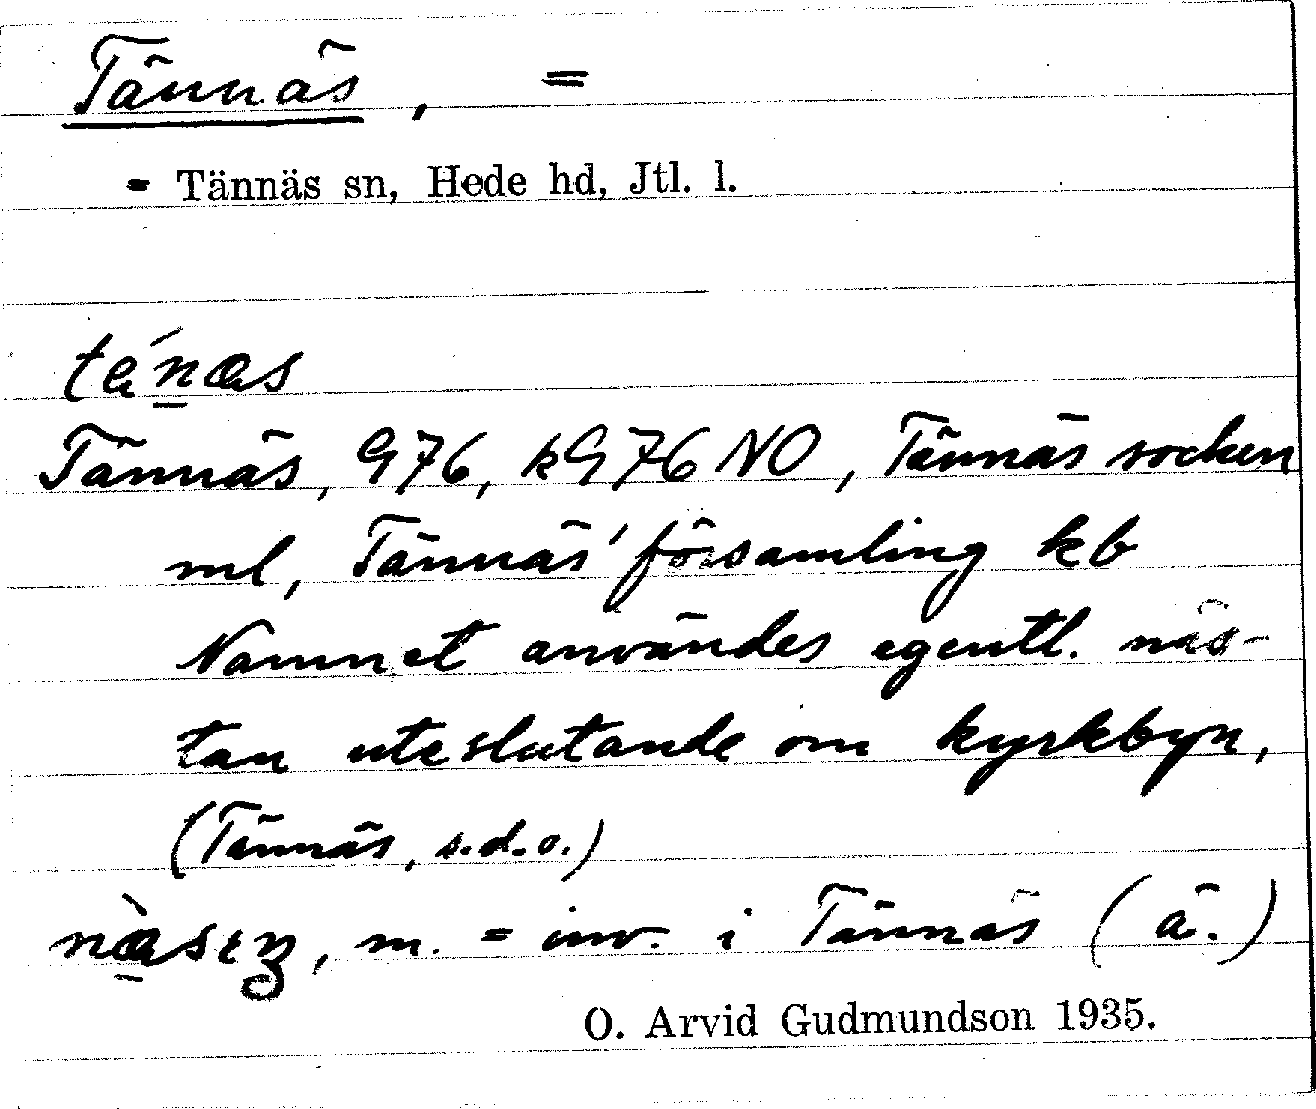 Tännäs, =
= Tännäs sn, Hede hd, Jtl. l.
Tännäs, G76, kG76 NO, Tännäs socken
ml, Tännäs' församling kb
Namnet användes egentl. näs-
tan uteslutande om kyrkbyn,
(Tännäs, s.d.o.)
m. = inv. i Tännäs (ä.)
O. Arvid Gudmundson 1935.